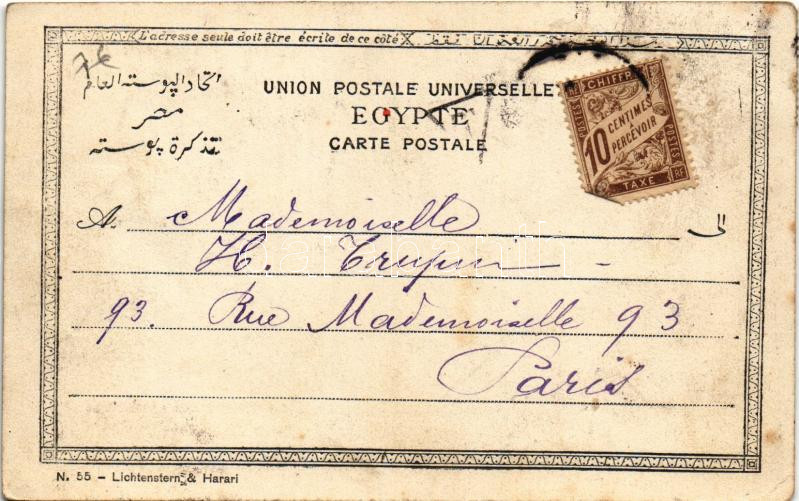 L'adresse seule doit être écrite de ce côté
7€
اتحاد البوسته العام
مصر
تذكرة بوسته
UNION POSTALE UNIVERSELLE
EGYPTE
CARTE POSTALE
CHIFFR
POSTES
10 CENTIMES
À PERCEVOIR
POSTES
TAXE
RF
A. Mademoiselle الى
H. Trupin
93. Rue Mademoiselle 93
Paris
N. 55 – Lichtenstern & Harari